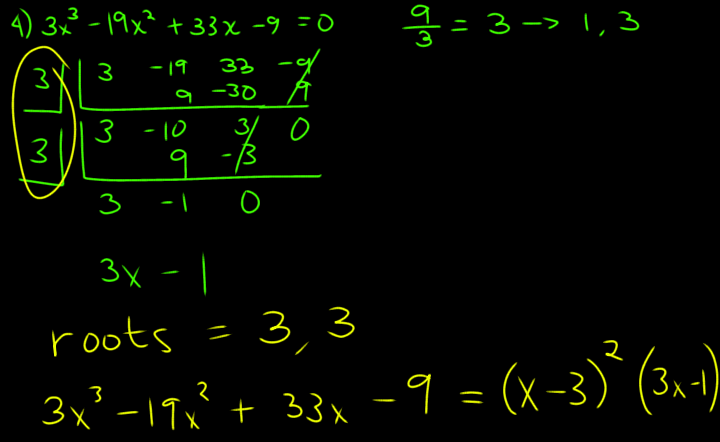 4) 3x³ - 19x² + 33x - 9 = 0    9/3 = 3 -> 1, 3
3 | 3 -19 33 -9
9 -30 9
3 | 3 -10 3 0
9 -3
3 -1 0
3x - 1
roots = 3, 3
3x³ - 19x² + 33x - 9 = (x-3)² (3x-1)